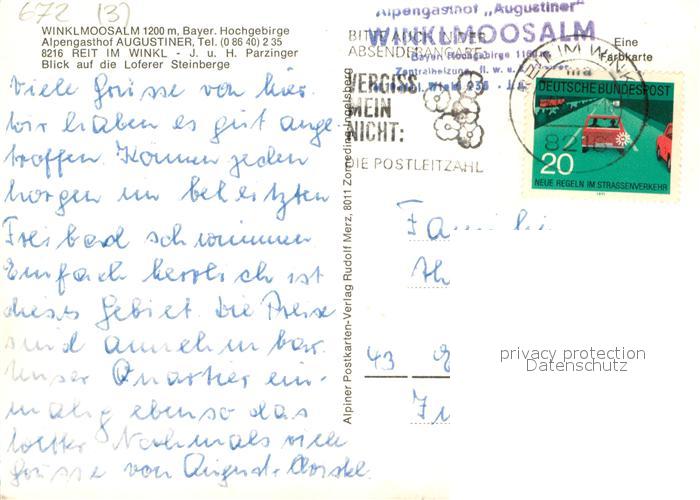 672 (3)
WINKLMOOSALM 1200 m, Bayer. Hochgebirge
Alpengasthof AUGUSTINER, Tel. (0 86 40) 2 35
8216 REIT IM WINKL - J. u. H. Parzinger
Blick auf die Loferer Steinberge
Alpengasthof „Augustiner"
WINKLMOOSALM
Bayer. Hochgebirge 1160 m
Zentralheizung, fl. w. u.
Eine
Farbkarte
BITTE AUCH IN DER
ABSENDERANGABE
VERGISS
MEIN
NICHT:
DIE POSTLEITZAHL
REIT IM WINKL
8216
DEUTSCHE BUNDESPOST
20
NEUE REGELN IM STRASSENVERKEHR
1971
Viele Grüsse von hier.
Wir haben es gut ange-
troffen. Können jeden
Morgen im beheizten
Freibad schwimmen
Einfach herrlich ist
dieses Gebiet. Die Preise
sind annehmbar.
Unser Quartier ein-
malig ebenso das
Wetter Nochmals viele
Grüsse von August +
Alpiner Postkarten-Verlag Rudolf Merz, 8011 Zorneding-Ingelsberg
Famili
43
privacy protection
Datenschutz